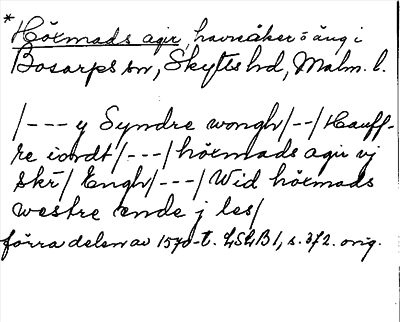 * Höxmads agir, havreåker o äng i
Bosarps sn, Skytts hd, Malm. l.
/---y Syndre wongh/--/Hauff-
re iordt/---/höxmads agir vj
skr/ Engh/---/Wid höxmads
westre ende j les/
förra delen av 1570-t. LSLB1, s. 372. orig.